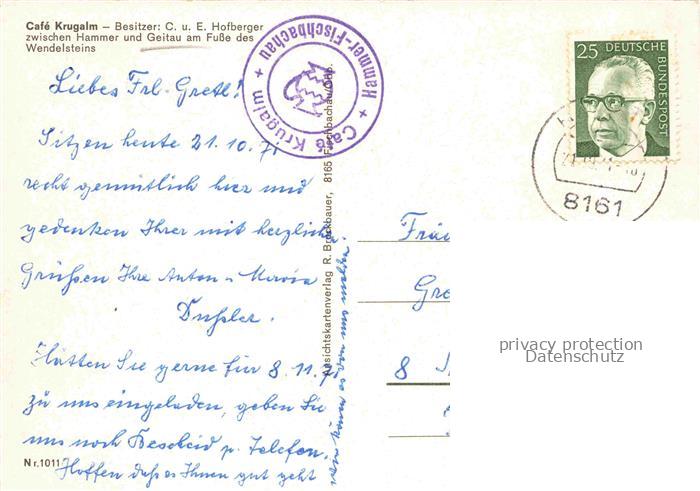 Café Krugalm – Besitzer: C. u. E. Hofberger
zwischen Hammer und Geitau am Fuße des
Wendelsteins
Hammer-Fischbachau + Café Krugalm +
25 DEUTSCHE
BUNDESPOST
8161
Liebes Frl. Gretl!
Sitzen heute 21.10.71
recht gemütlich hier und
gedenken Ihrer mit herzliche
Grüßen Ihre Anton u. Maria
Dußler.
Hätten Sie gerne für 8.11.71
zu uns eingeladen, geben Sie
uns noch Bescheid p. Telefon.
Hoffen daß es Ihnen gut geht
Nr. 1011
Ansichtskartenverlag R. Brückbauer, 8165 Fischbachau/Obb.
Fräu
Gre
8
privacy protection
Datenschutz